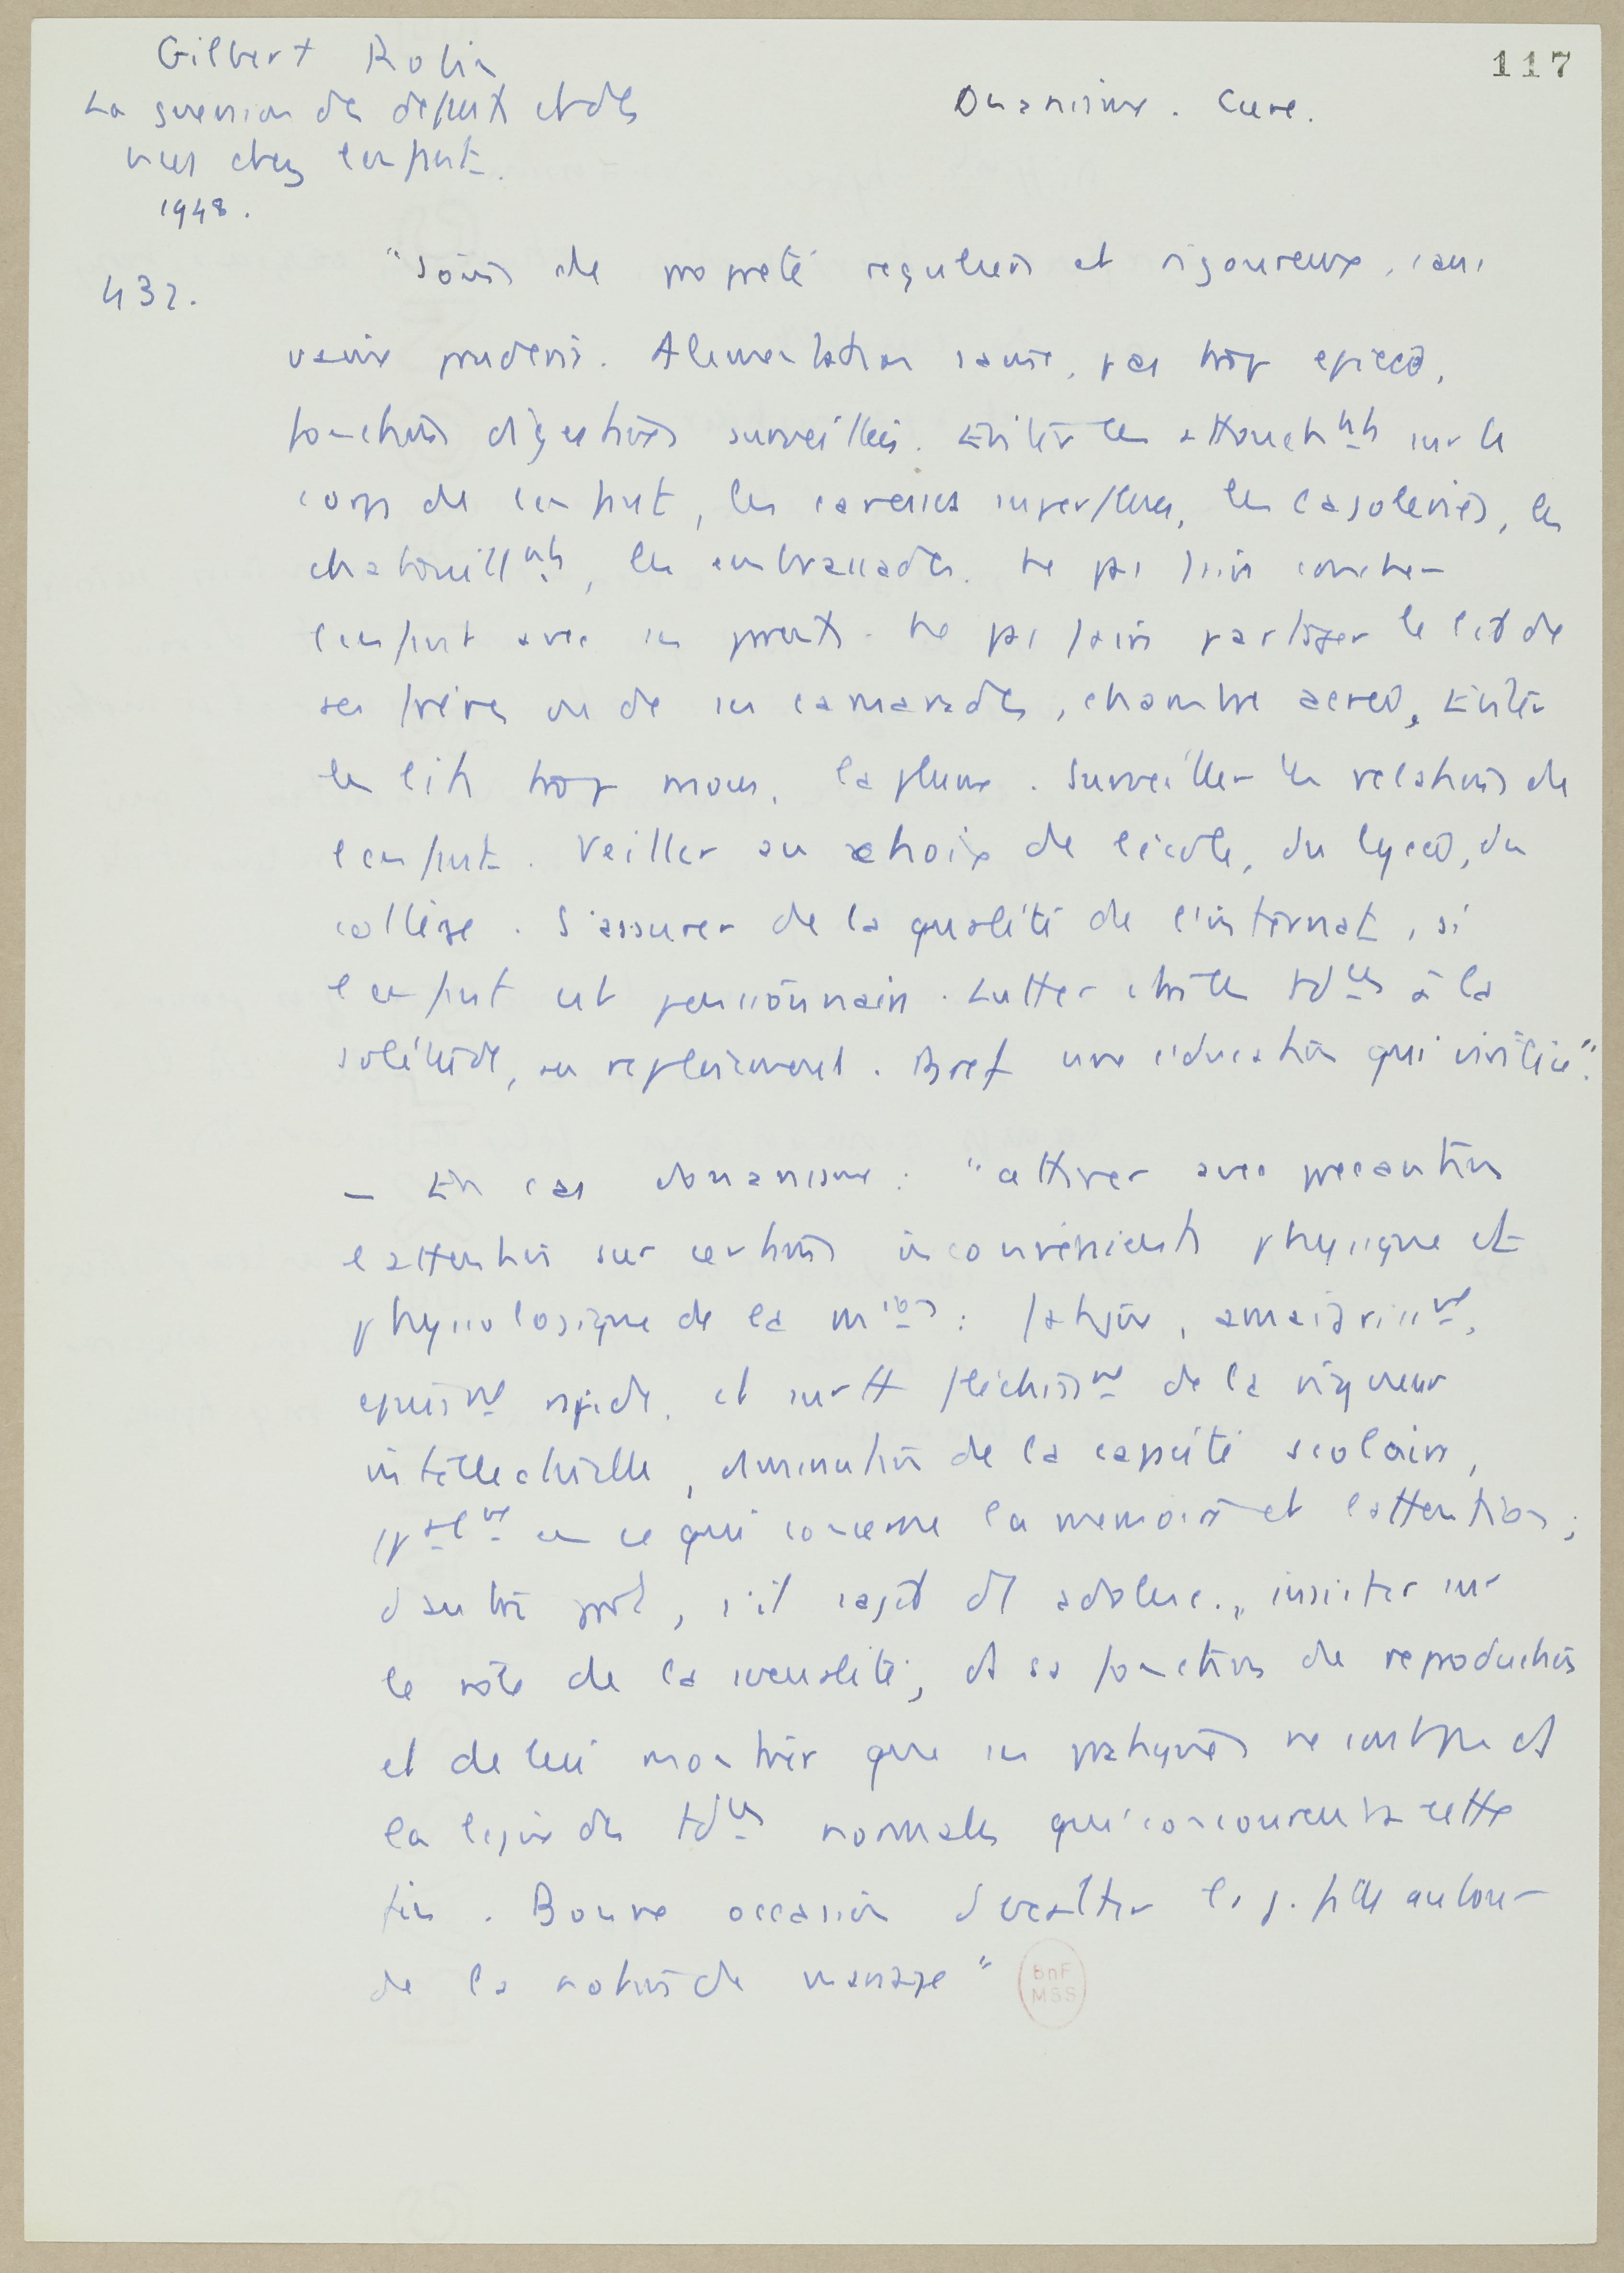 117
Gilbert Robin
La guérison des défauts et des
vices chez l'enfant.
1948.
Onanisme. Cure.
432.
"Soins de propreté réguliers et rigoureux, sans
vaine pruderie. Alimentation saine, pas trop épicée,
fonctions digestives surveillées. Eviter les attouchnts sur le
corps de l'enfant, les caresses superflues, les cajoleries, les
chatouillnts, les embrassades. Ne pas faire coucher
l'enfant avec ses parents. Ne pas faire partager le lit de
ses frères ou de ses camarades, chambre aérée, Eviter
les lits trop mous, la plume. Surveiller les relations de
l'enfant. Veiller au choix de l'école, du lycée, du
collège. S'assurer de la qualité de l'internat, si
l'enfant est pensionnaire. Lutter contre les tdces à la
solitude, au reploiement. Bref une éducation qui virilise".
– En cas d'onanisme : "attirer avec précaution
l'attention sur certains inconvénients physique et
physiologique de la mion : fatigue, amaigrissnt,
épuisnt rapide, et surtt fléchissnt de la vigueur
intellectuelle, diminution de la capacité scolaire,
en ce qui concerne la mémoire et l'attention ;
d'autre part, s'il s'agit d' adolesc., insister sur
le rôle de la sexualité, et sa fonction de reproduction
et de lui montrer que ses pratiques ne sont pas ds
la ligne des tdces normales qui concourent à cette
fin. Bonne occasion d'exalter les j. filles autour
de la notion de mariage"
BnF
MSS